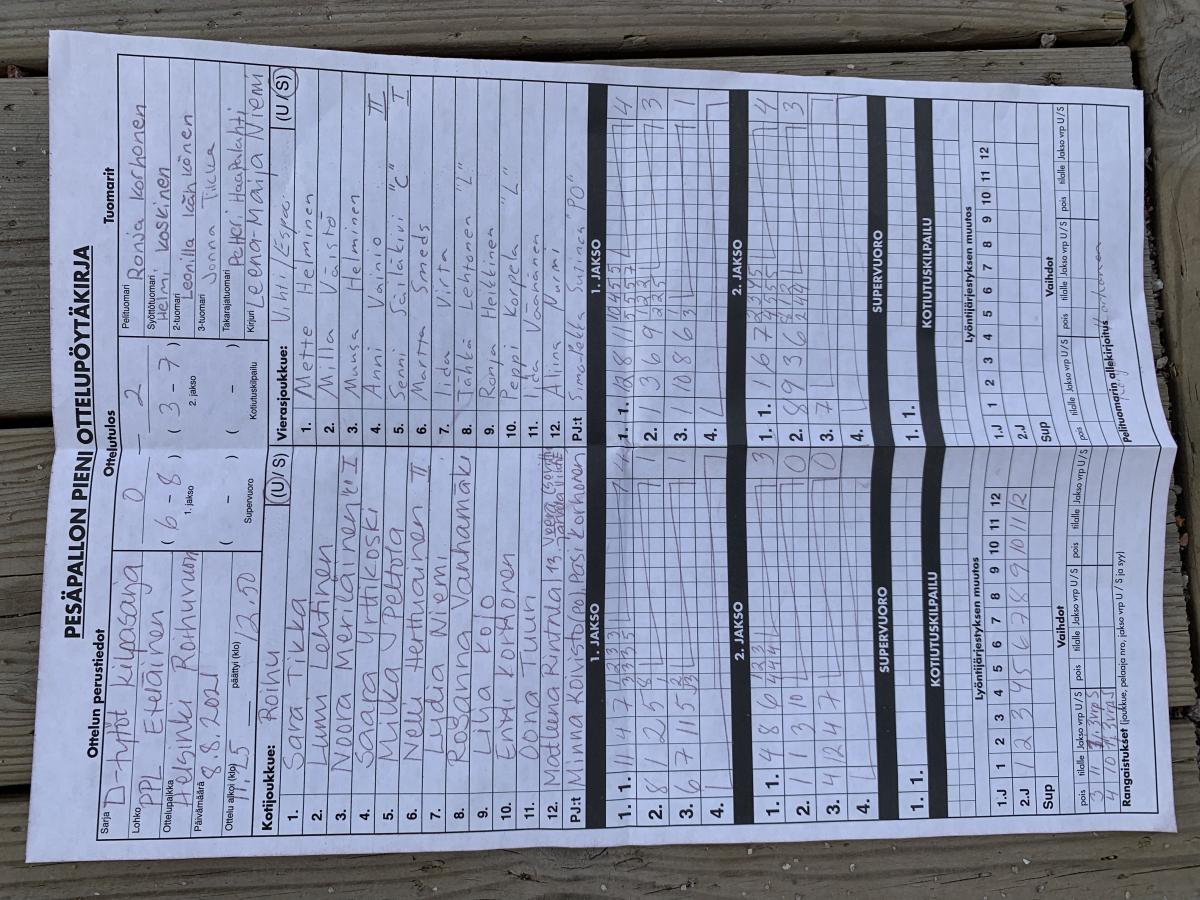 PESÄPALLON PIENI OTTELUPÖYTÄKIRJA
Ottelun perustiedot
Sarja D-tytöt kilpasarja
Lohko PPL Eteläinen
Ottelupaikka Helsinki Roihuvuori
Päivämäärä 8.8.2021
Ottelu alkoi (klo) 11.25 päättyi (klo) 12.50
Ottelutulos
0 – 2
( 6 - 8 ) ( 3 - 7 )
1. jakso 2. jakso
( - ) ( - )
Supervuoro Kotiutuskilpailu
Tuomarit
Pelituomari Ronja Korhonen
Syöttötuomari Helmi Koskinen
2-tuomari Leonilla Kähkönen
3-tuomari Jonna Tikka
Takarajatuomari Petteri Haapalahti
Kirjuri Leena-Maija Niemi
Kotijoukkue: Roihu (U / S)
1. Sara Tikka
2. Lumi Lehtinen
3. Noora Meriläinen I
4. Saaga Yrttikoski
5. Neilika Peltola
6. Nelli Herttuainen II
7. Lydia Niemi
8. Rosanna Vanhamäki
9. Lilja Kolo
10. Enni Korhonen
11. Oona Tuuri
12. Matleena Rintala 13. Veera
PJ:t Minna Koivistoinen, Pasi Korhonen
Vierasjoukkue: Vihti/Espoo (U / S)
1. Mette Helminen
2. Milla Väistö
3. Muusa Helminen
4. Anni Vainio II
5. Senni Säiläkivi "C" I
6. Martta Smeds
7. Iida Virta
8. Tähkä Lehtonen "L"
9. Ronja Heikkinen
10. Peppi Korpela "L"
11. Iida Väänänen
12. Aliina Nurmi
PJ:t Simo-Pekka "PO"
1. JAKSO 1. JAKSO
1. 1. 11 4 7 4
2. 8 1 2 5 1
3. 6 7 11 5 1
4.
1. 1. 12 8 11 4
2. 1 3 6 9 3
3. 1 10 8 6 1
4.
2. JAKSO 2. JAKSO
1. 1. 4 8 6 3
2. 1 1 3 10 0
3. 4 12 4 7 0
4.
1. 1. 1 6 7 4
2. 8 9 3 6 3
3. 7
4.
SUPERVUORO SUPERVUORO
1. 1. 1. 1.
KOTIUTUSKILPAILU KOTIUTUSKILPAILU
Lyöntijärjestyksen muutos
1 2 3 4 5 6 7 8 9 10 11 12
1.J
2.J 1 2 3 4 5 6 7 8 9 10 11 12
Sup
Lyöntijärjestyksen muutos
1 2 3 4 5 6 7 8 9 10 11 12
1.J
2.J
Sup
Vaihdot Vaihdot
pois tilalle Jakso vrp U / S pois tilalle Jakso vrp U / S pois tilalle Jakso vrp U / S
3 11 1,3vrpS
4 10 1,3vrpS
pois tilalle Jakso vrp U / S pois tilalle Jakso vrp U / S pois tilalle Jakso vrp U / S
Rangaistukset (joukkue, pelaaja nro, jakso vrp U / S ja syy)
Pelituomarin allekirjoitus